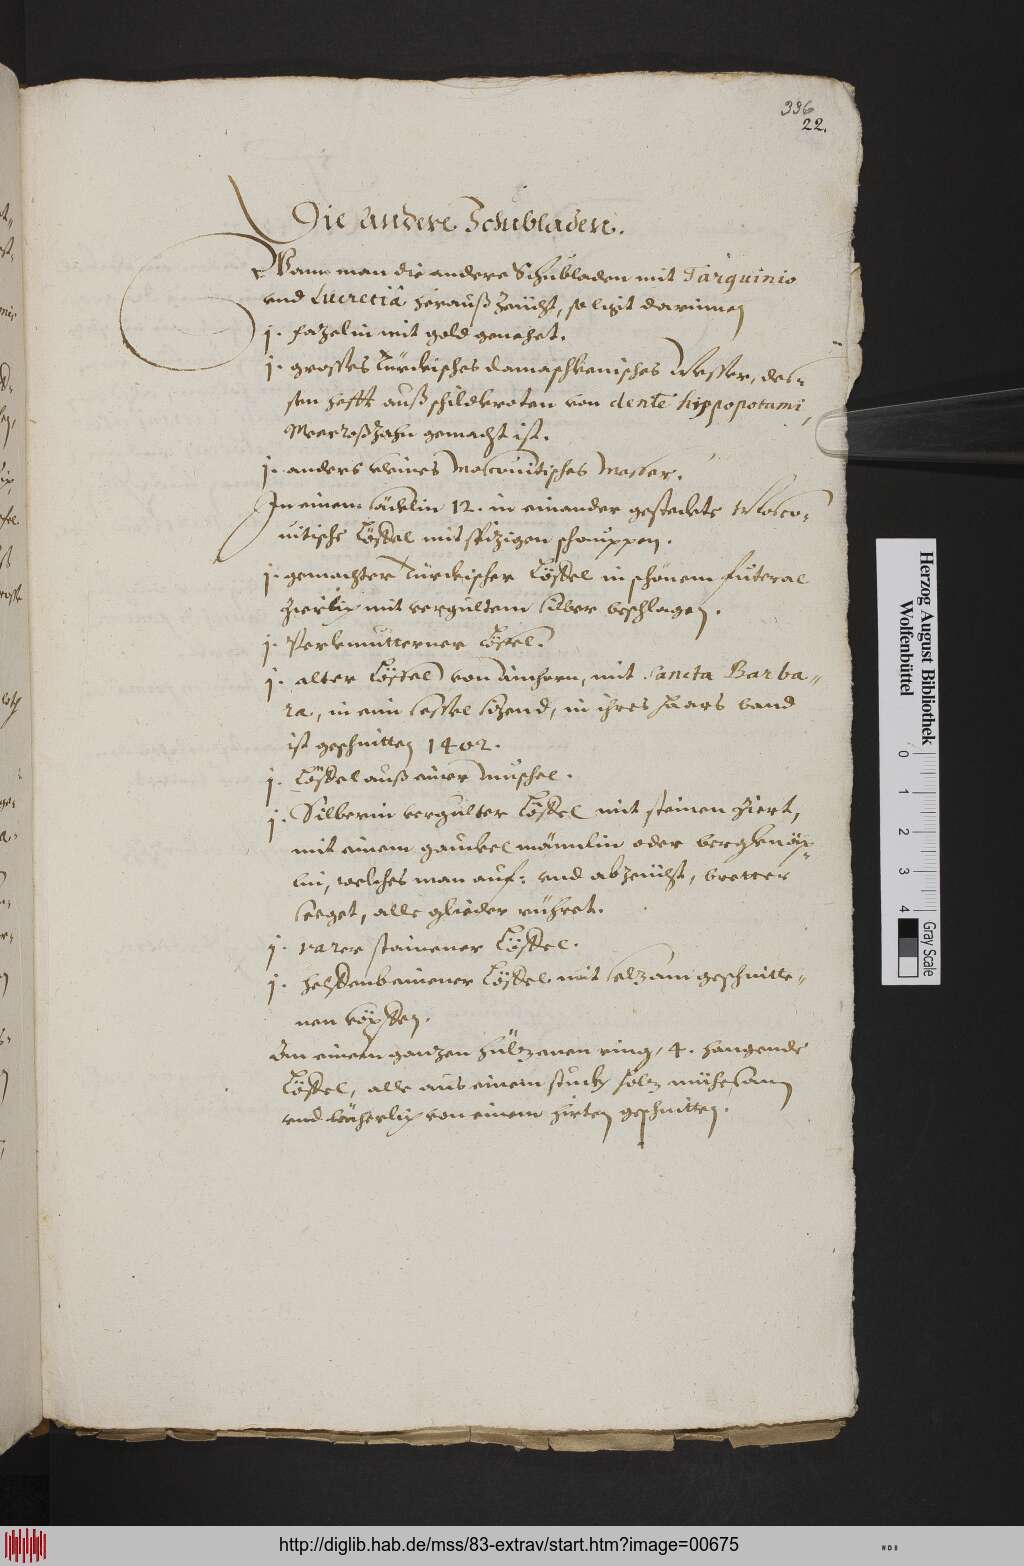 336
22.
Die andere Schubladen.
Wann man die andere Schubladen mit Tarquinio
vnd Lucretiâ herauß zeücht, so ligt darinnen
j. fazelin mit gold genehet.
j. grosses Türckisches damaschkenisches Messer, des-
sen hefft auß schildkroten von dente hippopotami,
Meerroßzahn gemacht ist.
j. anders kleines Moscouitisches Messer.
In einem säcklin 12. in einander gesteckte Mosco-
uitische Löffel mit spizigen schauppen.
j. gemachter Türckischer Löffel in schönem futeral
zierlich mit vergultem silber beschlagen.
j. Perlemutterner Löffel.
j. alter Löffel von ainhorn, mit Sancta Barba-
ra, in eim sessel sizend, in ihres haars band
ist geschnitten 1402.
j. Löffel auß einer Muschel.
j. Silberin vergulter Löffel mit steinen ziert,
mit einem gauckelmännlin oder bergknäp-
lin, welches man auf: vnd abzeücht, bretter
seeget, alle glieder rühret.
j. rarer stainener Löffel.
j. helffenbeinener Löffel mit selzam geschnitte-
nen köpffen.
An einem ganzen hülzenen ring, 4. hangende
Löffel, alle aus einem stuck holz mühesam
vnd künstlich von einem hirten geschnitten.
Herzog August Bibliothek
Wolfenbüttel
0 1 2 3 4
Gray Scale
http://diglib.hab.de/mss/83-extrav/start.htm?image=00675